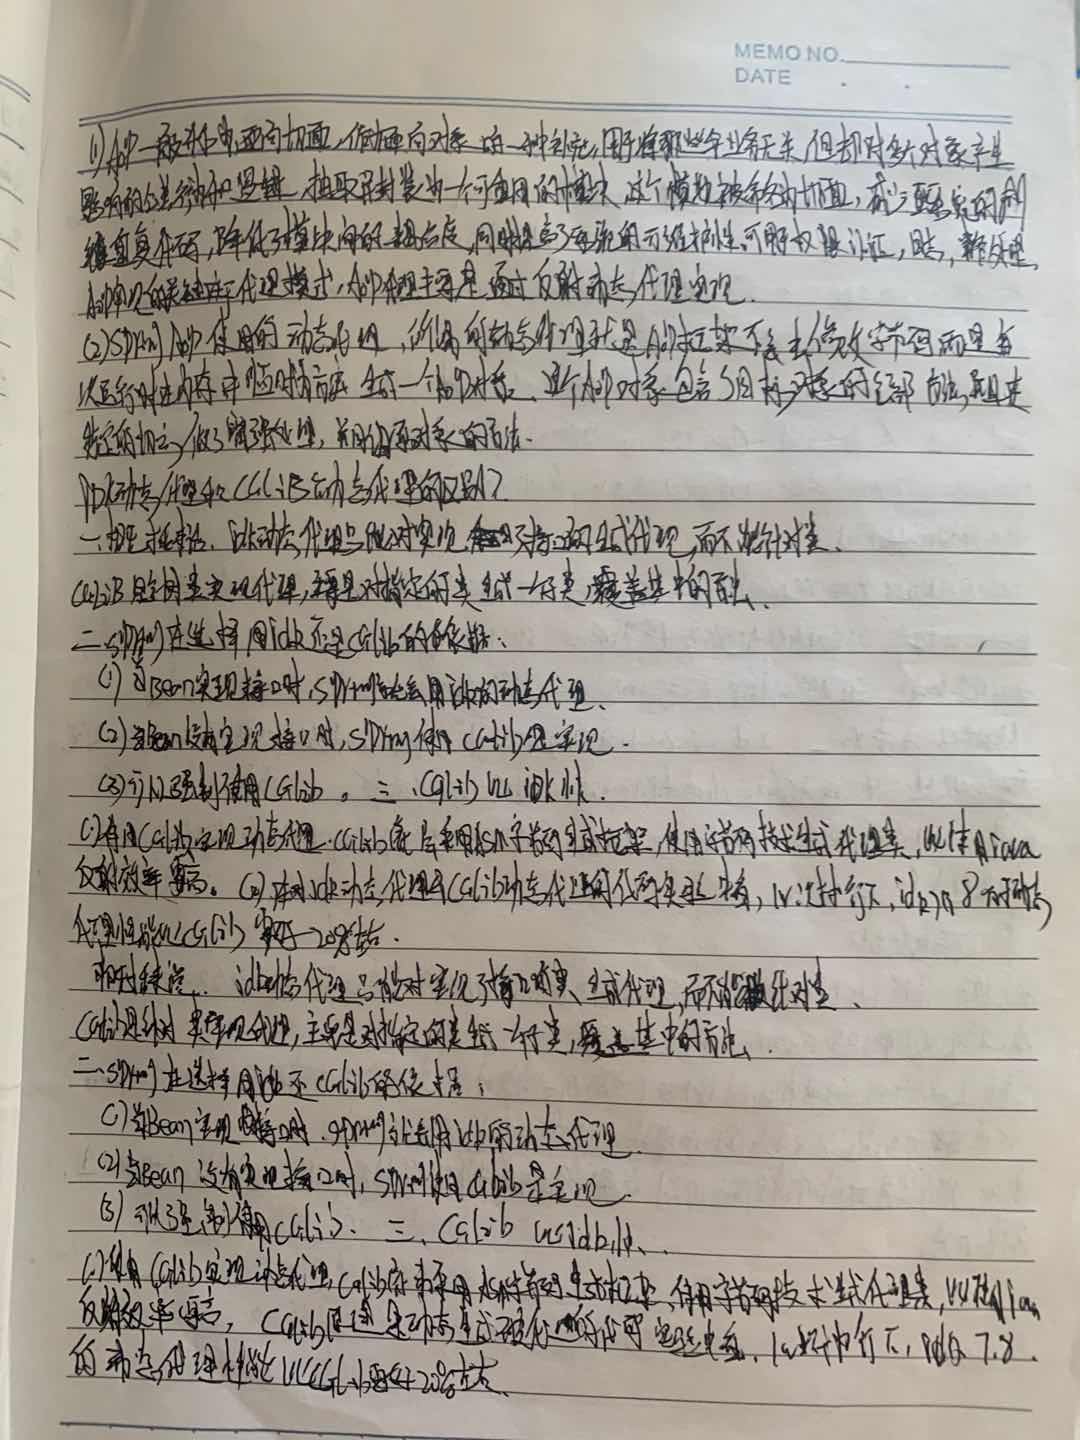 MEMO NO.
DATE
(1) AOP一般称为面向切面,作为面向对象的一种补充,用于将那些与业务无关,但却对多个对象产生
影响的公共行为和逻辑,抽取并封装为一个可重用的模块,这个模块被命名为切面,减少系统的
重复代码,降低了模块间的耦合度,同时提高了系统的可维护性,可用于权限认证,日志,事务处理
AOP实现的关键在于代理模式,AOP代理主要是通过反射动态代理实现.
(2) Spring AOP使用的动态代理,所谓的动态代理就是AOP框架不会去修改字节码而是每
次运行时在内存中临时为方法生成一个AOP对象、这个AOP对象包含了目标对象的全部方法,并且在
特定的切点做了增强处理,并回调原对象的方法.
JDK动态代理和CGLIB动态代理的区别?
一、jdk动态代理只能对实现了接口的生成代理,而不能针对类.
CGLIB是针对类实现代理,主要是对指定的类生成一个子类,覆盖其中的方法、
二、Spring在选择用jdk还是CGLib的依据:
(1) 当Bean实现接口时,Spring就会用jdk的动态代理、
(2) 当Bean没有实现接口时,Spring使用CGLib是实现.
(3) 可以强制使用CGLib。三、CGLib比jdk快.
(1) 使用CGLib实现动态代理.CGLib底层采用ASM字节码生成框架,使用字节码技术生成代理类,比使用java
反射效率要高。(2) 在对jdk动态代理与CGLib动态代理的代码实验中看,1w次执行下,jdk7.8的动态
代理性能比CGLib要好20%左右.
jdk动态代理只能对实现了接口的类生成代理,而不能针对类、
CGLib是针对类实现代理,主要是对指定的类生成一个子类,覆盖其中的方法、
二、Spring在选择用jdk还是CGLib的依据:
(1) 当Bean实现接口时.Spring就会用jdk的动态代理
(2) 当Bean没有实现接口时,Spring使用CGLib是实现.
(3) 可以强制使用CGLib. 三、CGLib比jdk快、
(1) 使用CGLib实现动态代理,CGLib底层采用ASM字节码生成框架、使用字节码技术生成代理类,比使用java
反射效率要高,CGLib动态代码实验中看,1w次执行下,jdk 7.8.
的动态代理性能比CGLib要好20%左右、